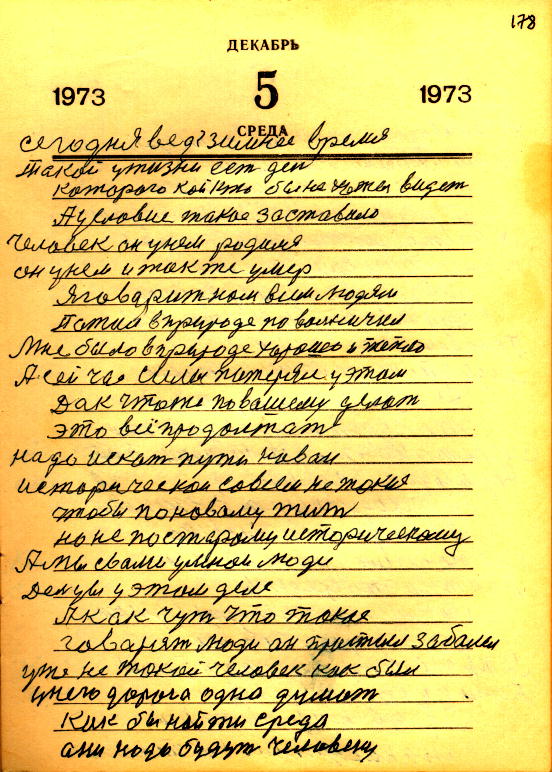 178
ДЕКАБРЬ
1973 5 1973
СРЕДА
сегодня ведь зимнее время
такой у жизни ест ден
которого кой кто бы не хотел видет
А условие такое заставило
человек он у нем родился
он у нем и так же умер
Я говарит нам всем людям
в природе по
Мне было в природе хорошо и тепло
А сей час силы потерял у этом
Дак что же по вашему делат
это всё продолжат
надо искат пути новаи
исторической совсем не такия
чтобы по новому жит
но не по старому историческому
А мы с вами умнои люди
Денги у этом деле
А как чут что такое
говарят люди он простыл заболел
уже не такой человек как был
у него дорога одна думат
Как бы найти среда
ани надо будут человеку